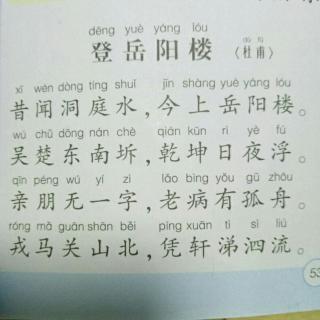 dēng yuè yáng lóu
登岳阳楼
dù fǔ
〈杜甫〉
xī wén dòng tíng shuǐ, jīn shàng yuè yáng lóu
昔闻洞庭水,今上岳阳楼。
wú chǔ dōng nán chè qián kūn rì yè fú
吴楚东南坼,乾坤日夜浮。
qīn péng wú yí zì lǎo bìng yǒu gū zhōu
亲朋无一字,老病有孤舟。
róng mǎ guān shān běi píng xuān tì sì liú
戎马关山北,凭轩涕泗流。
53